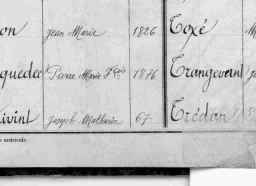 on Jean Marie 1826 Toxé
quédec Pierre Marie Fçois 1876 Trangevant
ivint Joseph Mathurin 67 Trédan